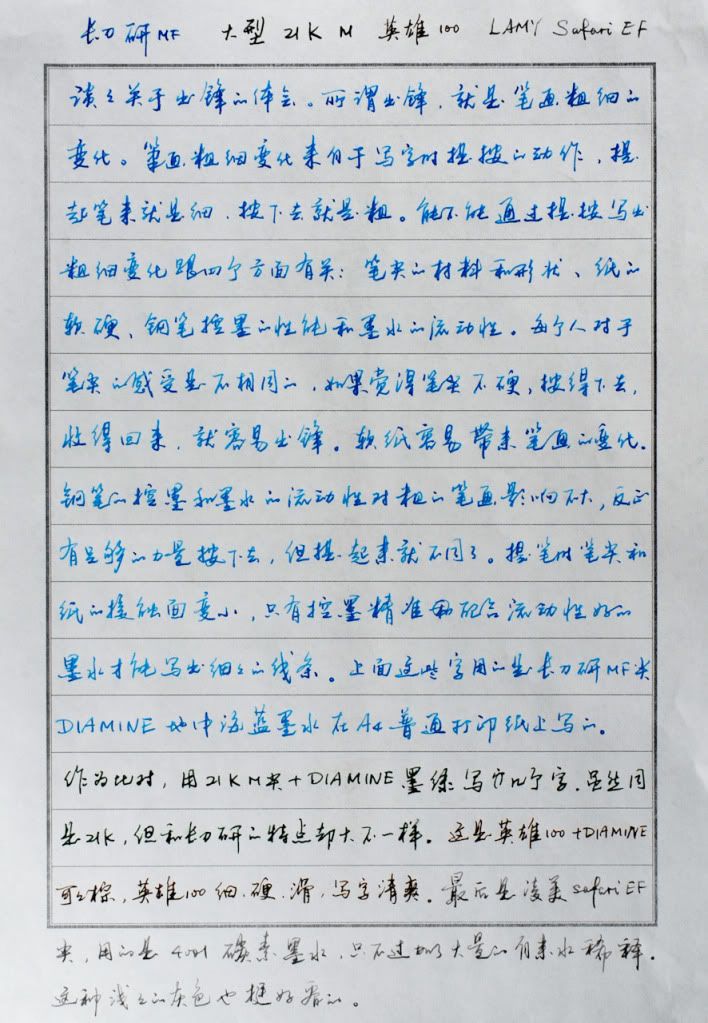 长刀研MF 大型21K M 英雄100 LAMY Safari EF
谈々关于出锋的体会。所谓出锋,就是笔画粗细的
变化。笔画粗细变化来自于写字时提按的动作,提
起笔来就是细,按下去就是粗。能不能通过提按写出
粗细变化跟四个方面有关:笔尖的材料和形状、纸的
软硬、钢笔控墨的性能和墨水的流动性。每个人对于
笔尖的感受是不相同的,如果觉得笔尖不硬,按得下去,
收得回来,就容易出锋。软纸容易带来笔画的变化。
钢笔的控墨和墨水的流动性对粗的笔画影响不大,反正
有足够的力量按下去,但提起来就不同了。提笔时笔尖和
纸的接触面变小,只有控墨精准配合流动性好的
墨水才能写出细々的线条。上面这些字用的是长刀研MF尖
DIAMINE地中海蓝墨水在A4普通打印纸上写的。
作为比对,用21K M尖+DIAMINE墨绿写几个字,虽然同
是21K,但和长刀研的特点却大不一样。这是英雄100+DIAMINE
可々棕,英雄100细、硬、滑,写字清爽。最后是凌美Safari EF
尖,用的是4001碳素墨水,只不过加了大量的自来水稀释。
这种浅々的灰色也挺好看的。